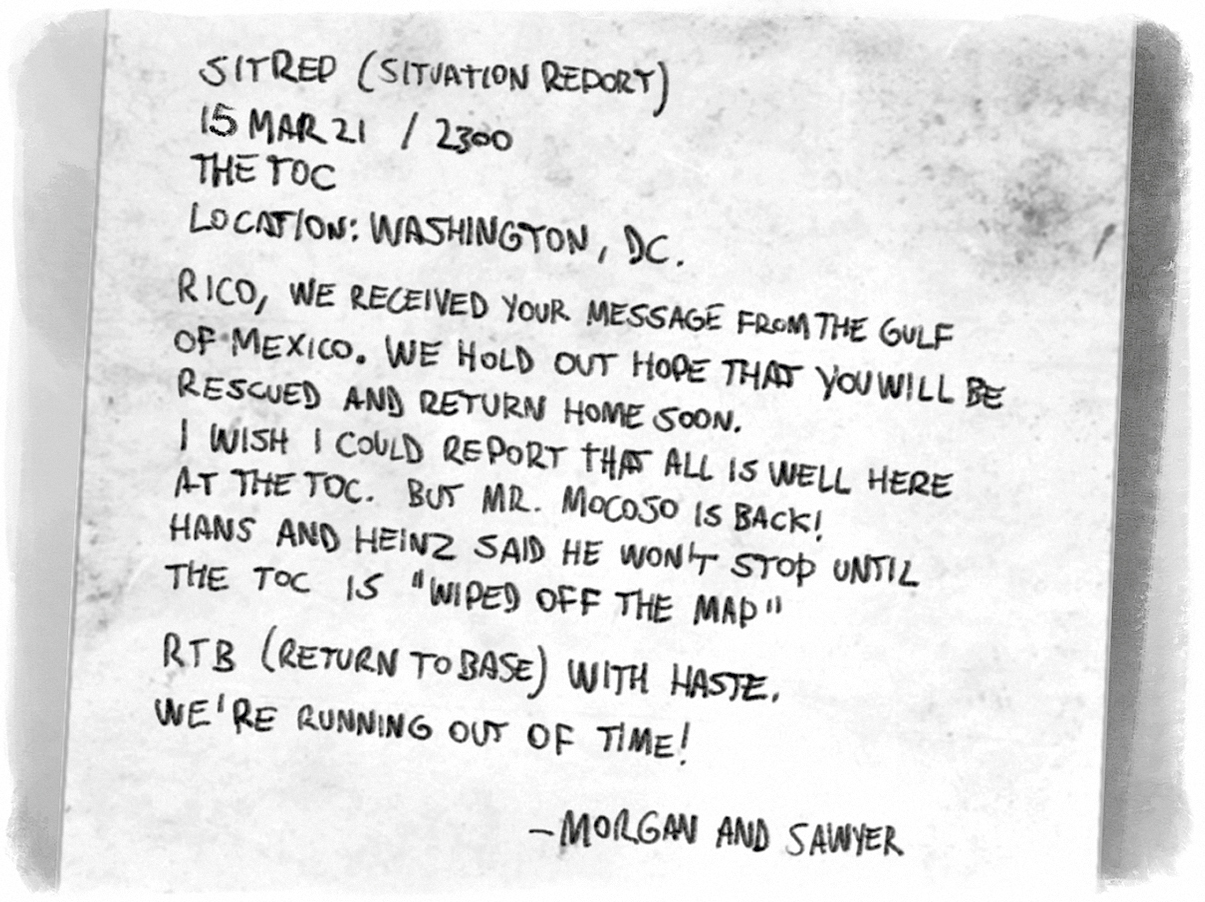 SITREP (SITUATION REPORT)
15 MAR 21 / 2300
THE TOC
LOCATION: WASHINGTON, DC.
RICO, WE RECEIVED YOUR MESSAGE FROM THE GULF
OF MEXICO. WE HOLD OUT HOPE THAT YOU WILL BE
RESCUED AND RETURN HOME SOON.
I WISH I COULD REPORT THAT ALL IS WELL HERE
AT THE TOC. BUT MR. MOCOSO IS BACK!
HANS AND HEINZ SAID HE WON'T STOP UNTIL
THE TOC IS "WIPED OFF THE MAP"
RTB (RETURN TO BASE) WITH HASTE.
WE'RE RUNNING OUT OF TIME!
-MORGAN AND SAWYER